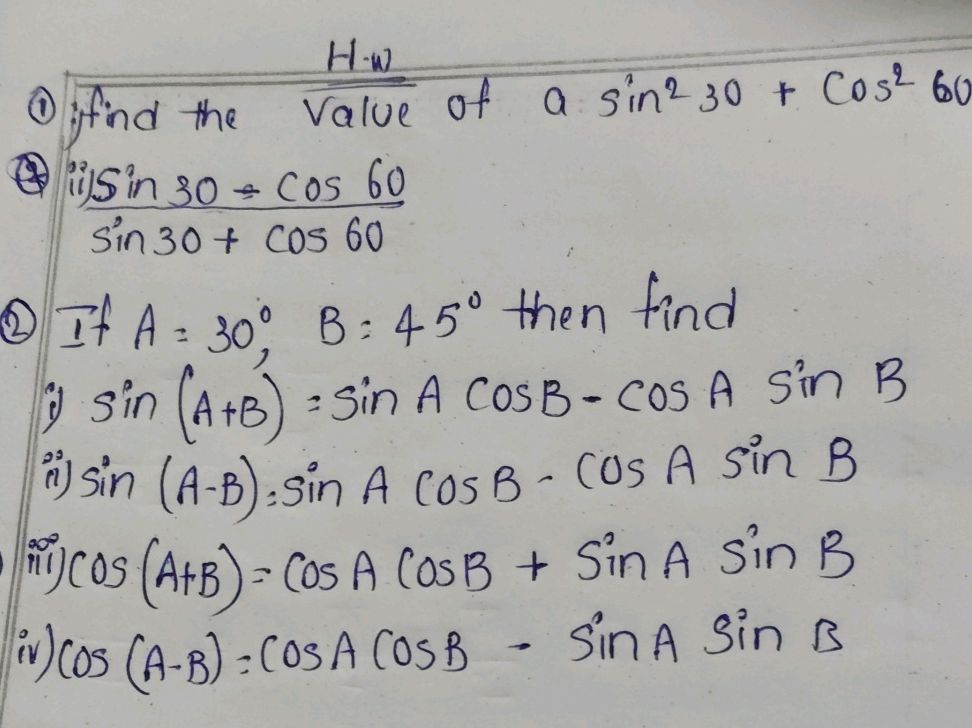 H.W
① i) find the value of a sin² 30 + Cos² 60
ii) Sin 30 - Cos 60
sin 30 + cos 60
② If A = 30°, B = 45° then find
i) sin (A+B) = sin A cos B - cos A sin B
ii) sin (A-B) = sin A cos B - cos A sin B
iii) cos (A+B) = cos A cos B + Sin A Sin B
iv) cos (A-B) = cos A cos B - Sin A Sin B